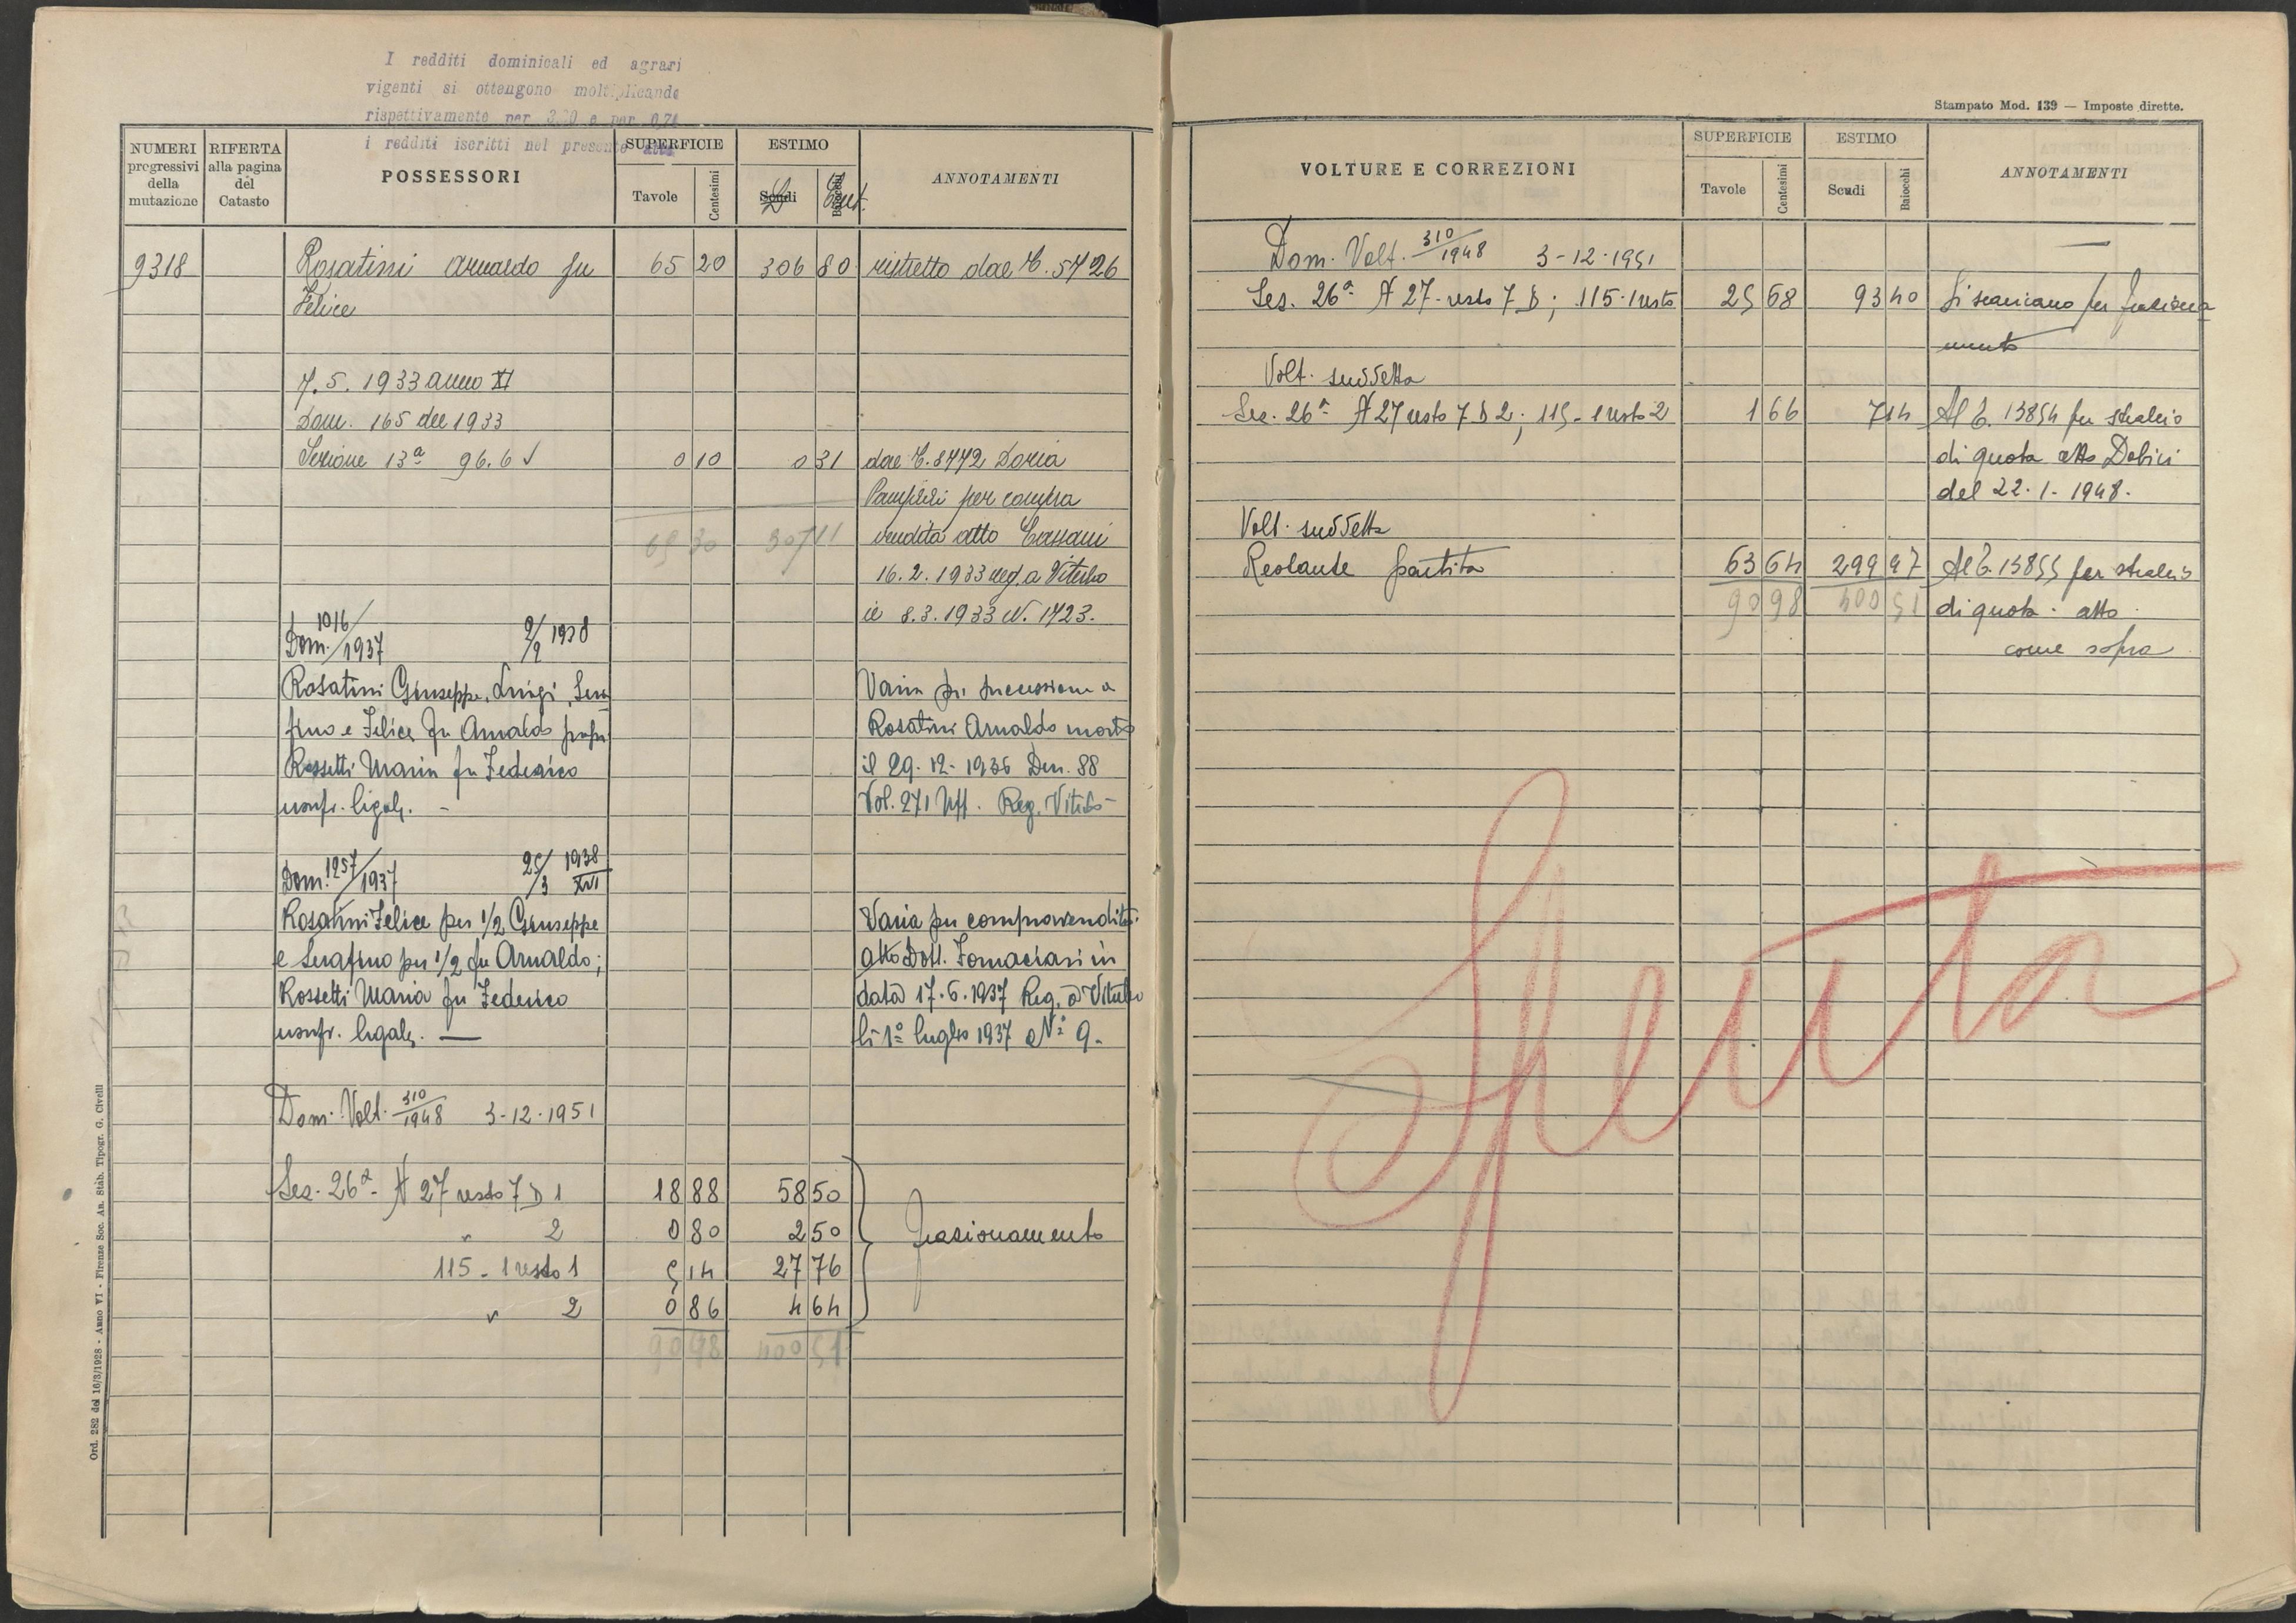 I redditi dominicali ed agrari
vigenti si ottengono moltiplicando
rispettivamente per 3,20 e per 0,74
i redditi iscritti nel presente
NUMERI progressivi della mutazione
RIFERTA alla pagina del Catasto
POSSESSORI
SUPERFICIE
Tavole Centesimi
ESTIMO
Scudi Baiocchi
L Cent.
ANNOTAMENTI
9318 Rosatini Arnaldo fu 65 20 306 80 ristretto dal C. 5426
Felice
7.5.1933 anno XI
Dom. 165 del 1933
Sezione 13ª 96.6 0 10 0 31 dal C. 8472 Doria
Pamphili per compra
65 30 307 11 vendita atto Cassani
16.2.1933 reg. a Viterbo
il 8.3.1933 N. 1423.
Dom. 1016/1937 9/2 1938
Rosatini Giuseppe, Luigi, Sera Varia per successione a
fino e Felice fu Arnaldo propri Rosatini Arnaldo morto
Rossetti Maria fu Federico il 29-12-1936 Den. 88
usufr. legale. - Vol. 271 Uff. Reg. Viterbo -
Dom. 1257/1937 25/3 1938 XVI
Rosatini Felice per 1/2 Giuseppe Varia per compravendita
e Serafino per 1/2 fu Arnaldo; atto Dott. Fornaciari in
Rossetti Maria fu Federico data 17.6.1937 Reg. a Viterbo
usufr. legale. — li 1º luglio 1937 al Nº 9.
Dom. Volt. 310/1948 3-12-1951
Sez. 26ª - A 27 resto 7 D 1 18 88 58 50
" 2 0 80 2 50 frazionamento
115 - 1 resto 1 5 14 27 76
" 2 0 86 4 64
90 98 400 51
Ord. 282 del 16/3/1928 - Anno VI - Firenze Soc. An. Stab. Tipogr. G. Civelli
Stampato Mod. 139 — Imposte dirette.
VOLTURE E CORREZIONI
SUPERFICIE
Tavole Centesimi
ESTIMO
Scudi Baiocchi
ANNOTAMENTI
Dom. Volt. 310/1948 3-12-1951 —
Sez. 26ª A 27 - resto 7 D; 115 - 1 resto 25 68 93 40 Si scaricano per fraziona
mento
Volt. suddetta
Sez. 26ª A 27 resto 7 D 2; 115 - 1 resto 2 1 66 7 14 Al C. 13854 per stralcio
di quota atto Dobici
del 22-1-1948.
Volt. suddetta
Restante partita 63 64 299 97 Al C. 13855 per stralcio
90 98 400 51 di quota - atto
come sopra
Spenta